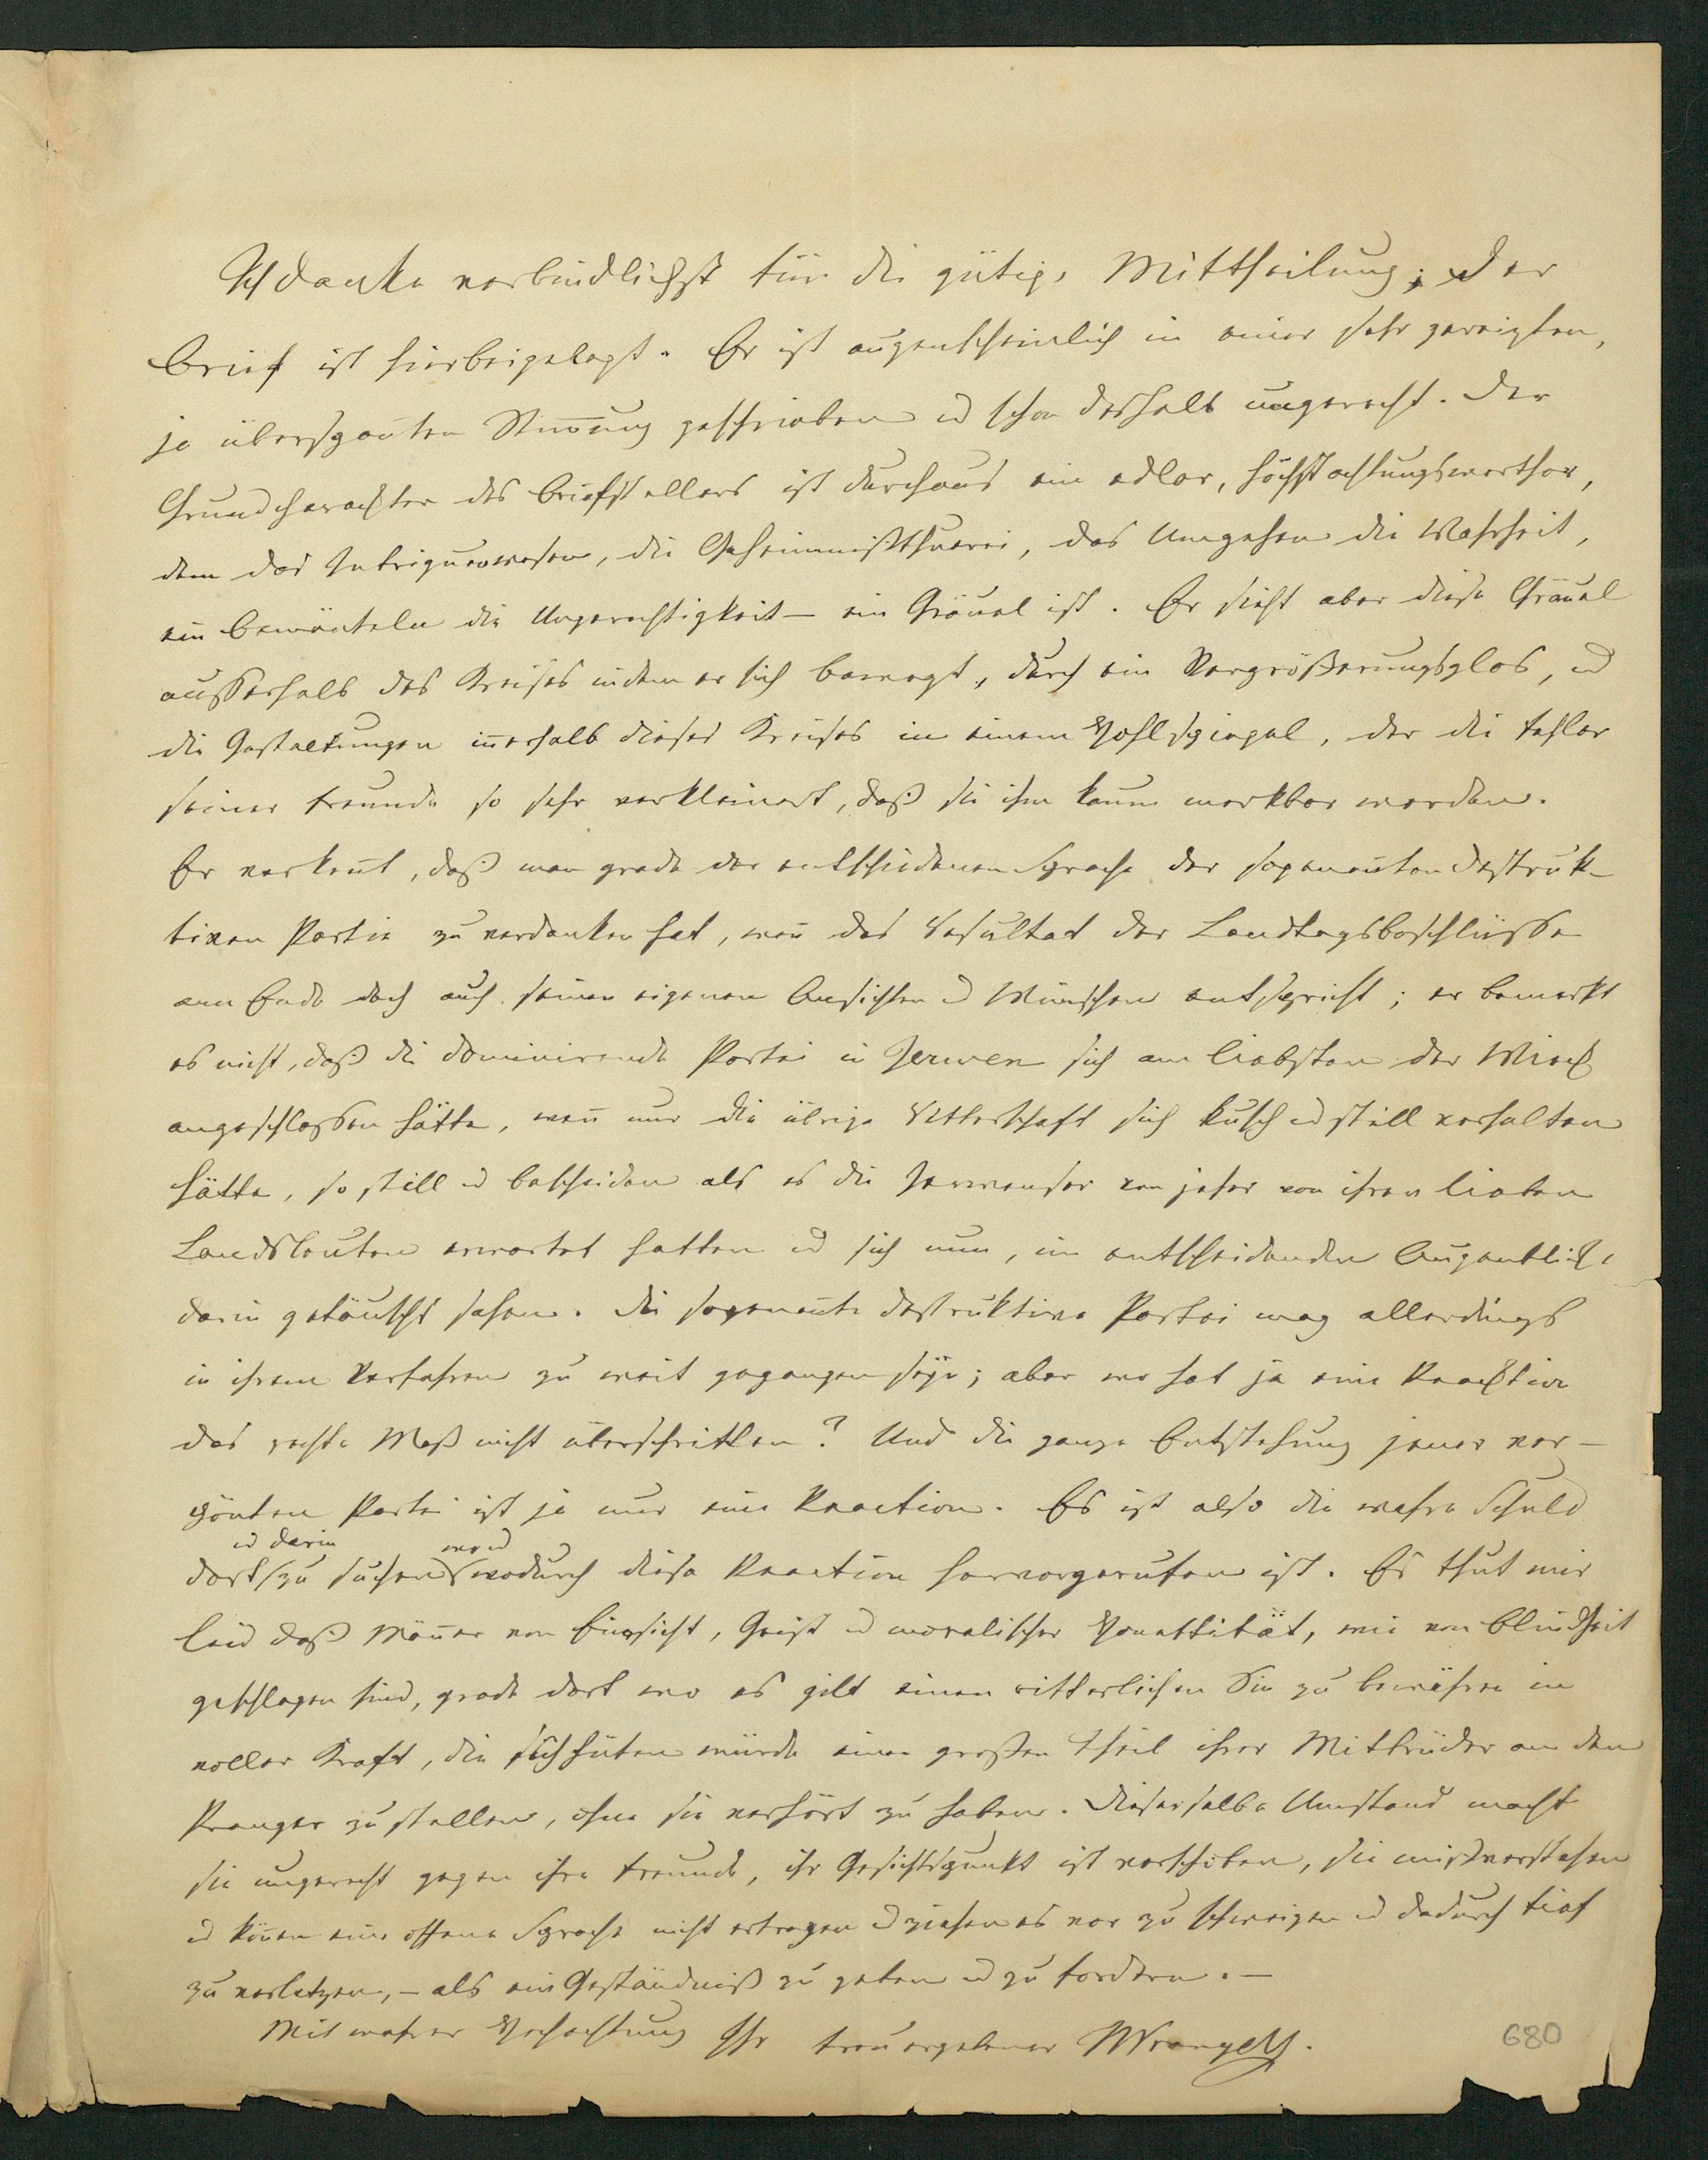 Ich danke verbindlichst für die gütige Mittheilung; der
Brief ist hierbeigelegt. Er ist augenscheinlich in einer sehr gereizten,
ja überspañten Stim̃ung geschrieben u schon deshalb ungerecht. Der
Grundcharachter des Briefstellers ist durchaus ein edler, höchstachtungswerther,
dem das Intriguenwesen, die Geheimnißthuerei, das Umgehen die Wahrheit,
ein bemänteln die Ungerechtigkeit – ein Gräuel ist. Er sieht aber diese Gräuel
ausserhalb des Kreises indem er sich bewegt, durch ein Vergrößerungsglas, u
die Gestaltungen iñerhalb dieses Kreises in einem Hohlspiegel, der die Fehler
seiner Freunde so sehr verkleinert, daß sie ihm kaum merkbar werden.
Er verkeñt, daß man grade der entschiedenen Sprache der sogenañten destruk-
tiven Partie zu verdanken hat, weñ das Resultat der Landtagsbeschlüsse
am Ende doch auch seinen eigenen Ansichten u Wünschen entspricht; er bemerkt
es nicht, daß die dominirende Partei in Jerwen sich am liebsten der Wieck
angeschlossen hätte, weñ nur die übrige Ritterschaft sich kusch u still verhalten
hätte, so still u bescheiden als es die Jerwenser von jeher von ihren lieben
Landsleuten erwartet hatten u sich nun, im entscheidenden Augenblicke
darin getäuscht sahen. Die sogenañte destruktive Partei mag allerdings
in ihrem Verfahren zu weit gegangen seyn; aber wo hat je eine Reacktion
das rechte Maß nicht überschritten? Und die ganze Entstehung jener ver-
pönten Partei ist ja nur eine Reaction. Es ist also die wahre Schuld
u darin wo u
dort zu suchen wodurch diese Reaction hervorgerufen ist. Es thut mir
leid daß Mäñer von Einsicht, Geist u moralischer Honettität, wie von Blindheit
geschlagen sind, grade dort wo es gilt einen ritterlichen Siñ zu bewähren in
voller Kraft, die sich hüten würde einen großen Theil ihrer Mitbrüder an den
Pranger zu stellen, ohne sie verhört zu haben. Dieserselbe Umstand macht
sie ungerecht gegen ihre Freunde, ihr Gesichtspunkt ist verschoben, sie mißverstehen
u köñen eine offene Sprache nicht ertragen u ziehen es vor zu schweigen u dadurch tief
zu verletzen, – als ein Geständniß zu geben u zu fordern. –
Mit wahrer Hochachtung Ihr treu ergebener WWrangell.
680